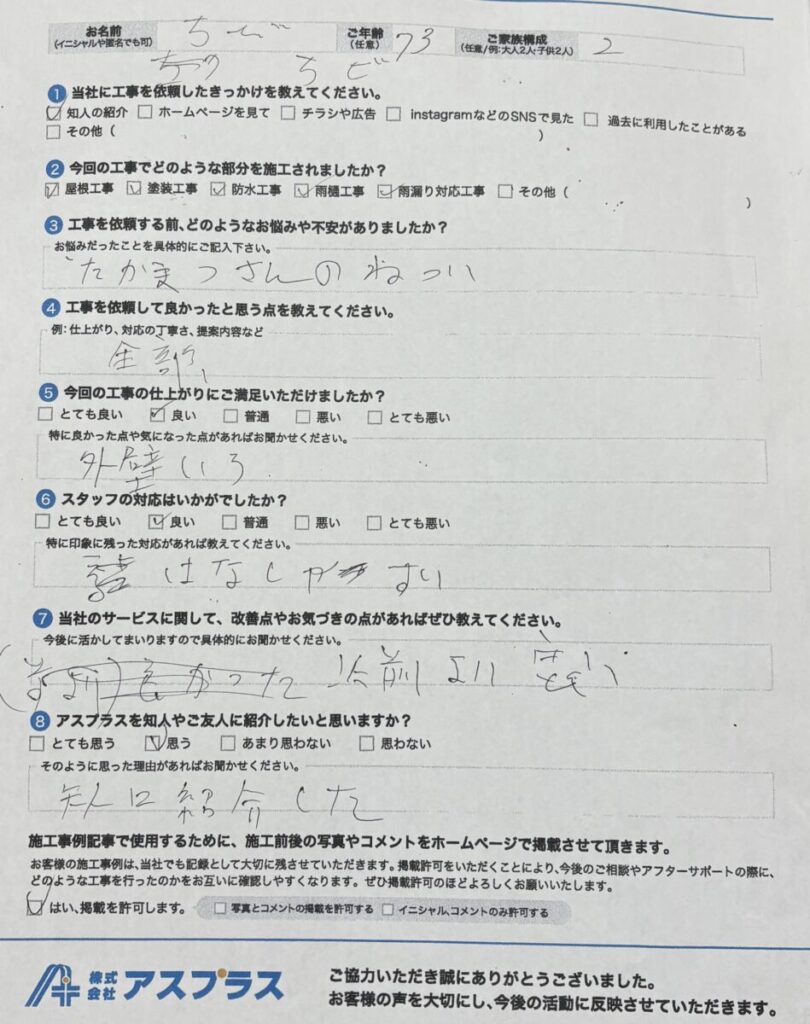 お名前
(イニシャルや匿名でも可)
ご年齢
(任意)
73
ご家族構成
(任意/例:大人2人・子供2人)
2
1 当社に工事を依頼したきっかけを教えてください。
知人の紹介 ホームページを見て チラシや広告 instagramなどのSNSで見た 過去に利用したことがある
その他( )
2 今回の工事でどのような部分を施工されましたか?
屋根工事 塗装工事 防水工事 雨樋工事 雨漏り対応工事 その他( )
3 工事を依頼する前、どのようなお悩みや不安がありましたか?
お悩みだったことを具体的にご記入下さい。
たかまつさんのねつい
4 工事を依頼して良かったと思う点を教えてください。
例:仕上がり、対応の丁寧さ、提案内容など
全部
5 今回の工事の仕上がりにご満足いただけましたか?
とても良い 良い 普通 悪い とても悪い
特に良かった点や気になった点があればお聞かせください。
外壁いろ
6 スタッフの対応はいかがでしたか?
とても良い 良い 普通 悪い とても悪い
特に印象に残った対応があれば教えてください。
はなしがすい
7 当社のサービスに関して、改善点やお気づきの点があればぜひ教えてください。
今後に活かしてまいりますので具体的にお聞かせください。
良かった 前より
8 アスプラスを知人やご友人に紹介したいと思いますか?
とても思う 思う あまり思わない 思わない
そのように思った理由があればお聞かせください。
知人に紹介した
施工事例記事で使用するために、施工前後の写真やコメントをホームページで掲載させて頂きます。
お客様の施工事例は、当社でも記録として大切に残させていただきます。掲載許可をいただくことにより、今後のご相談やアフターサポートの際に、
どのような工事を行ったのかをお互いに確認しやすくなります。ぜひ掲載許可のほどよろしくお願いいたします。
はい、掲載を許可します。 写真とコメントの掲載を許可する イニシャル、コメントのみ許可する
株式会社 アスプラス
ご協力いただき誠にありがとうございました。
お客様の声を大切にし、今後の活動に反映させていただきます。